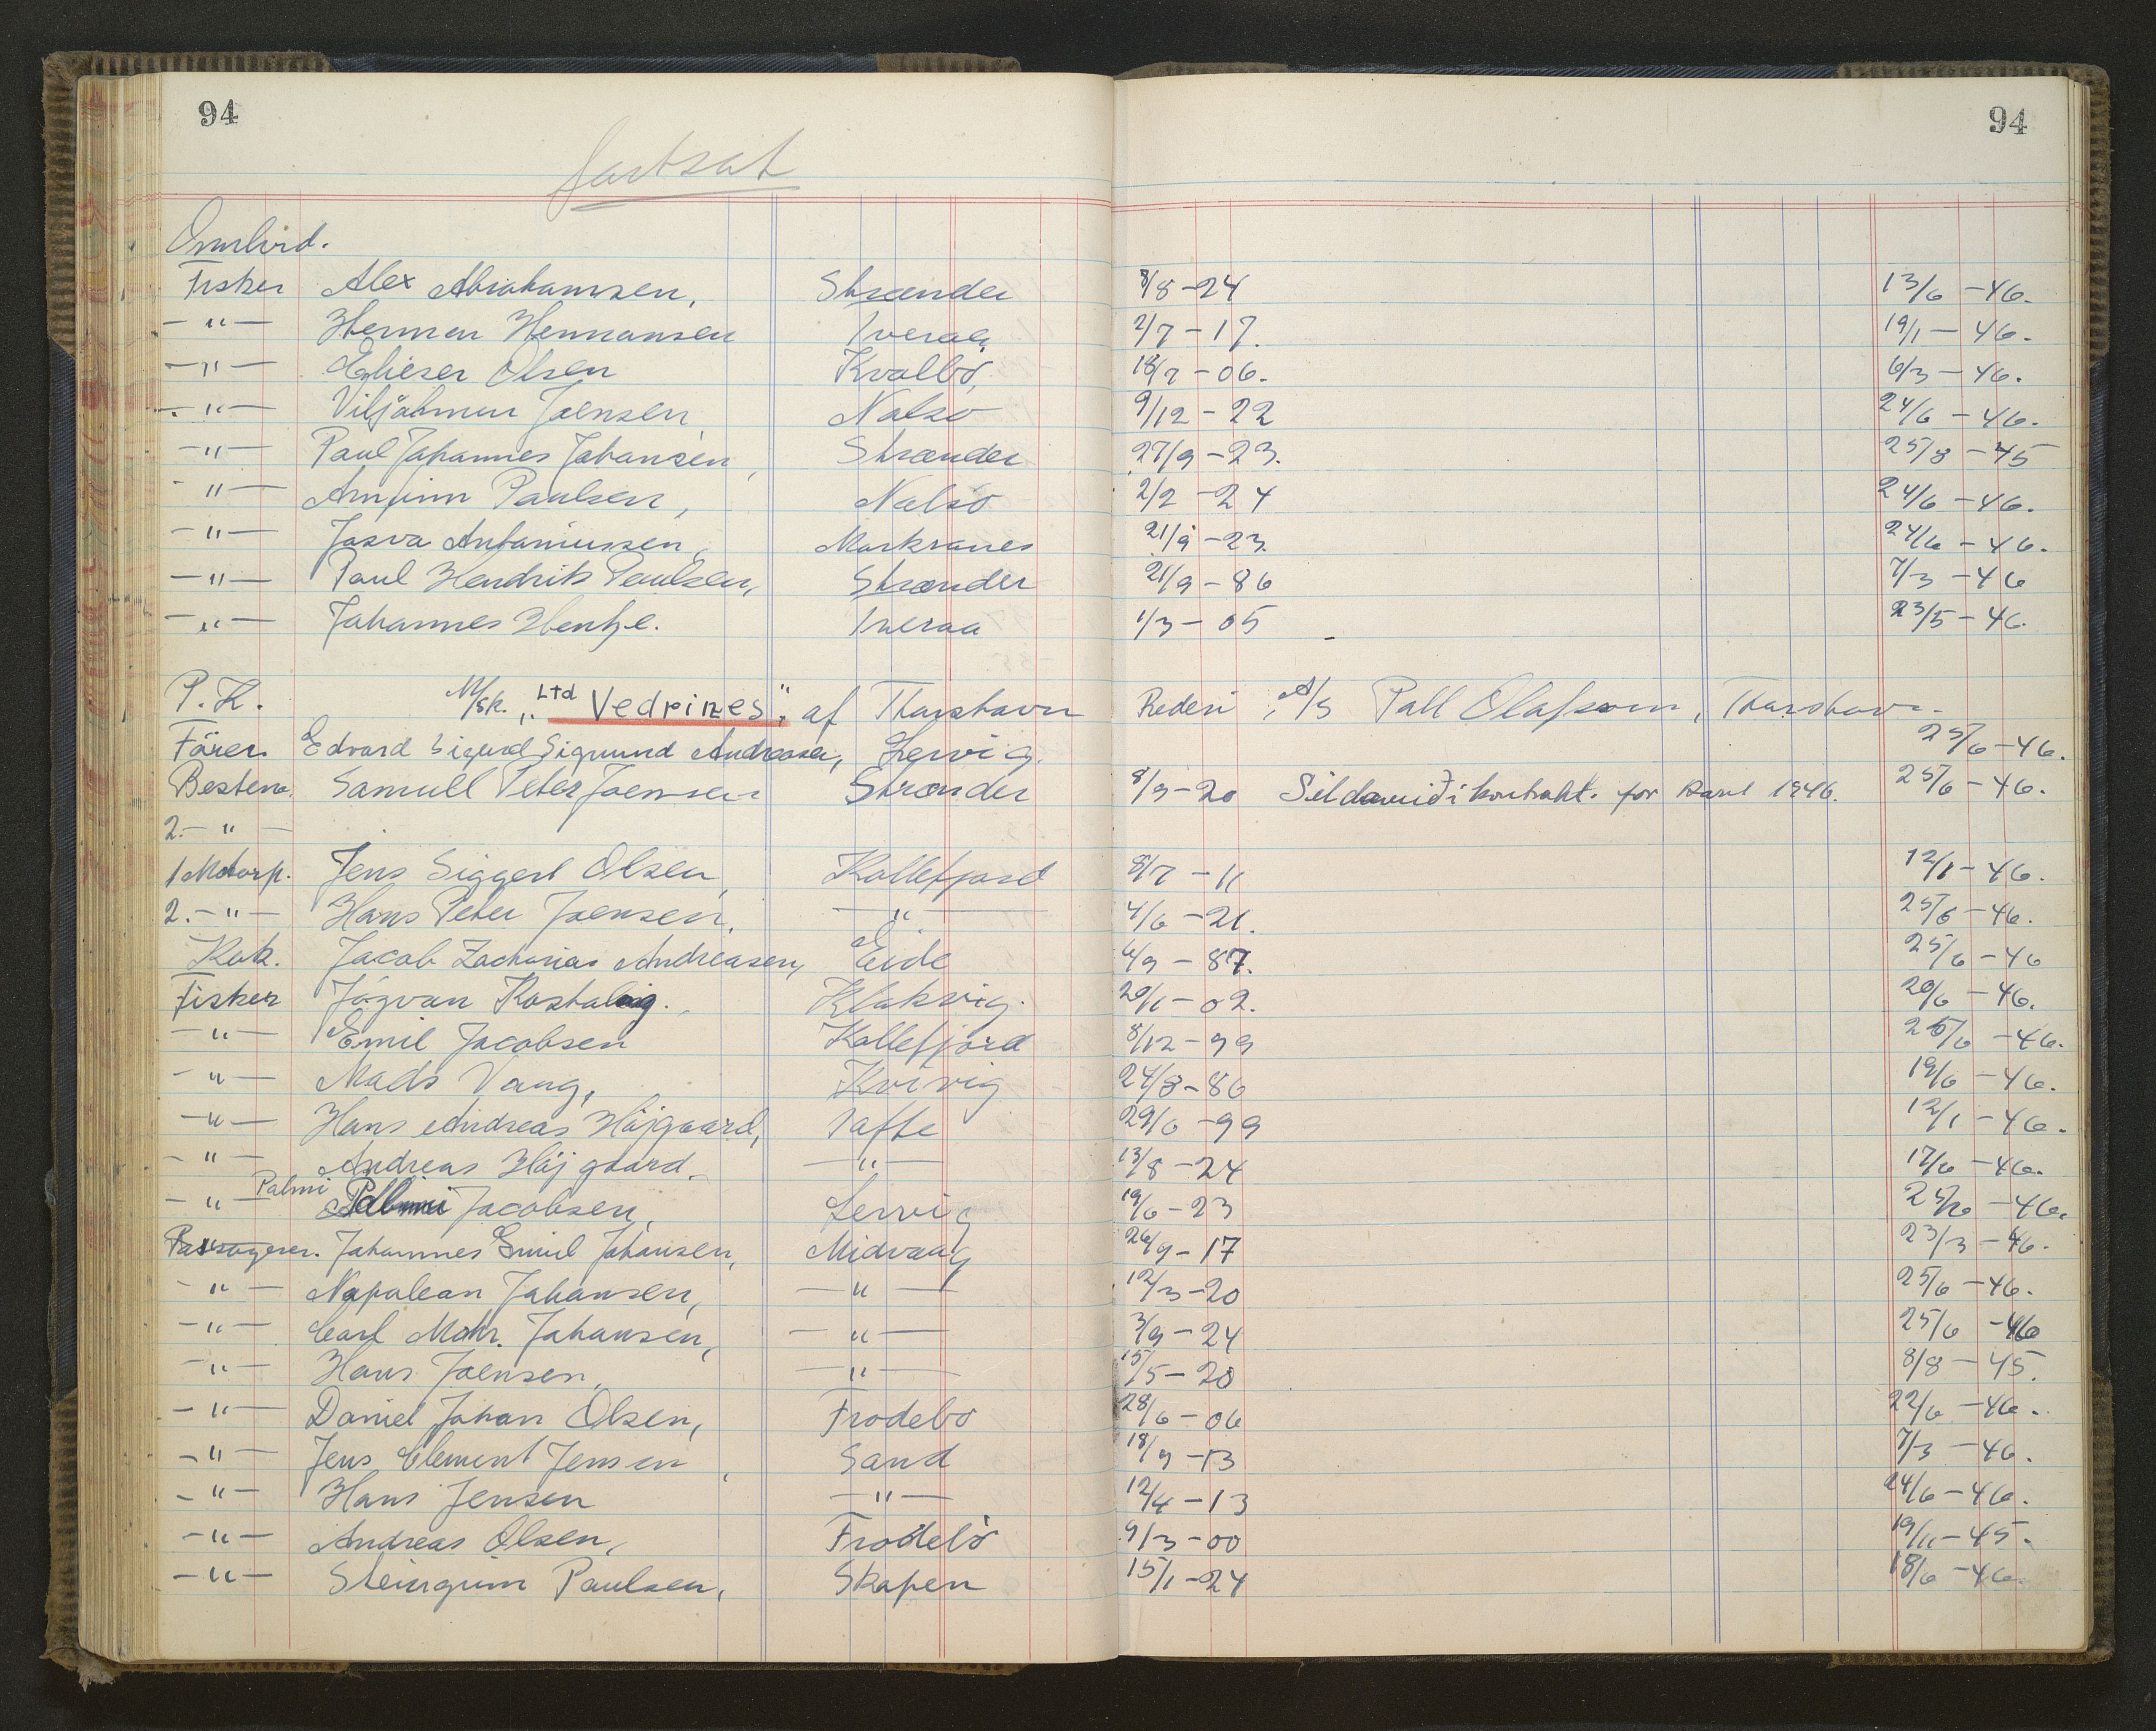 94 94
fortsat
Ombord.
Fisker Alex Abrahamsen, Strænder 8/8-24 13/6-46.
-"- Hermen Hermansen Tveraa, 2/7-17. 19/1-46.
-"- Elieser Olsen Kvalbö, 18/7-06. 6/3-46.
-"- Viljálmur Joensen, Nolsö 9/12-22 24/6-46.
-"- Paul Johannes Johansen, Strænder 27/9-23. 25/8-45
-"- Arnfinn Paulsen, Nolsö 2/2-24 24/6-46.
-"- Josva Antoniussen, Morkranes 21/9-23. 24/6-46.
-"- Paul Hendrik Poulsen, Strænder 21/9-86 7/3-46
-"- Johannes Hentze. Tveraa 1/3-05 23/5-46.
P.K. M/sk. "Ltd Vedrines", af Thorshavn Rederi: A/S Pall Olafsson, Thorshavn.
Förer Edvard Sigurd Sigmund Andreasen, Lervig. 25/6-46.
Bestm. Samuell Peter Joensen Strænder 8/9-20 Sildaveiði kontrakt. for 1946. 25/6-46.
2.-"-
1 Motorp. Jens Siggert Olsen, Kollefjord 8/7-11 12/1-46.
2.-"- Hans Peter Joensen, -"- 4/6-21. 25/6-46.
Kok. Jacob Zacharias Andreasen, Eide 4/9-87. 25/6-46
Fisker Jógvan Klaksvig. 20/1-02. 20/6-46.
-"- Emil Jacobsen Kollefjord 8/12-99 25/6-46.
-"- Mads Vang, Kvivig 24/8-86 19/6-46.
-"- Hans Andreas Höjgaard, Tofte 29/6-99 12/1-46.
-"- Andreas Höjgaard, -"- 13/8-24 17/6-46.
-"- Palmi Jacobsen, Lervig 19/6-23 25/6-46.
Passagerer. Johannes Emil Johansen, Midvaag 26/9-17 23/3-46.
-"- Napolean Johansen, -"- 12/3-20 25/6-46.
-"- Carl Mohr. Johansen, -"- 3/9-24 25/6-46
-"- Hans Joensen, -"- 15/5-20 8/8-45.
-"- Daniel Johan Olsen, Frodebö 28/6-06 22/6-46.
-"- Jens Clement Jensen, Sand 18/9-13 7/3-46.
-"- Hans Jensen -"- 12/4-13 24/6-46.
-"- Andreas Olsen, Frodebö 9/3-00 19/11-45.
-"- Steingrim Paulsen, Skopen 15/1-24 18/6-46.